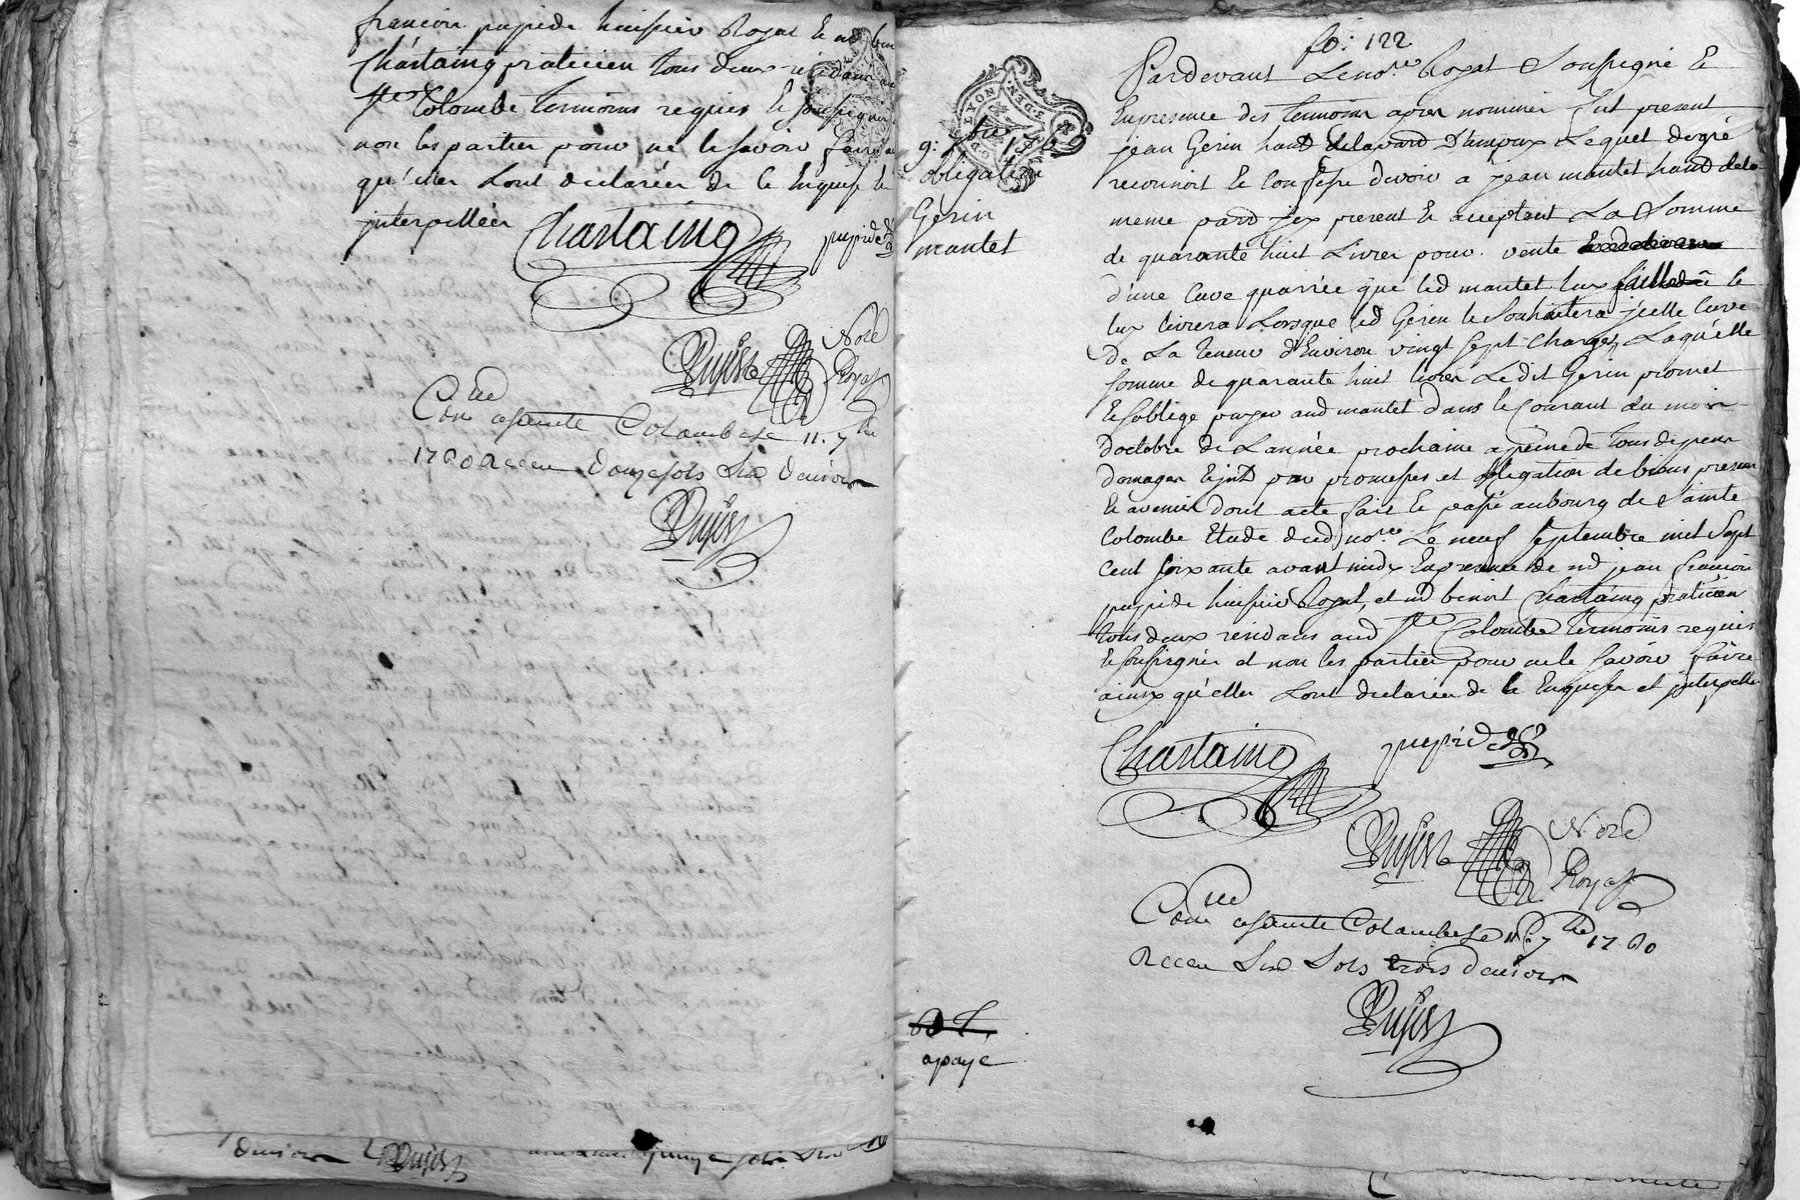 francois pupide huissier Royal et md ben
Chastaing praticien tous deux residans au
Ste Colombe temoins requis et soussignes
non les parties pour ne le savoir faire
qu'elles sont declarées de ce Enquise et
interpellées Chastaing pupide
Dujast Nore
Royal
Con lé a sainte Colombe le 11. 7bre
1760 Receu douze sols Six deniers
Dujast
deniers Dujast
quinze sols Six
fo: 122
LYON
GEN
9: 7bre 1760
obligation
Gerin
mantet
Pardevant Le nore Royal Soussigné et
En presence des temoins apres nommés fut present
jean Gerin hand de la pard D'ampux Lequel de gré
reconnoit et confesse devoir a jean mantet hand de la
meme pard jcy present et acceptant La Somme
de quarante huit Livres pour vente
d'une Cuve quarrée que led mantet luy et
luy livrera Lorsque led Gerin le Souhaitera jcelle Cuve
de La teneur d'Environ vingt Sept Charges, Laquelle
somme de quarante huit livres Ledit Gerin promet
et soblige payer aud mantet Dans le Courant du mois
Doctobre de L'année prochaine a peine de tous depens
Domages et jnts par promesses et obligation de biens presens
et avenir dont acte fait et passé au bourg de Sainte
Colombe Etude dud nore Le neuf Septembre mil Sept
cent soixante avant midy En presence de md jean francois
pupide huissier Royal, et md benoit Chastaing praticien
tous deux residans aud Ste Colombe temoins requis
et soussignés et non les parties pour ne le Savoir faire
ainsy qu'elles Sont declarées de ce Enquises et jnterpellées
Chastaing pupide
Dujast Nore
Royal
Con lé a sainte Colombe le 11. 7bre 1760
Receu Six Sols trois deniers
Dujast
a paye